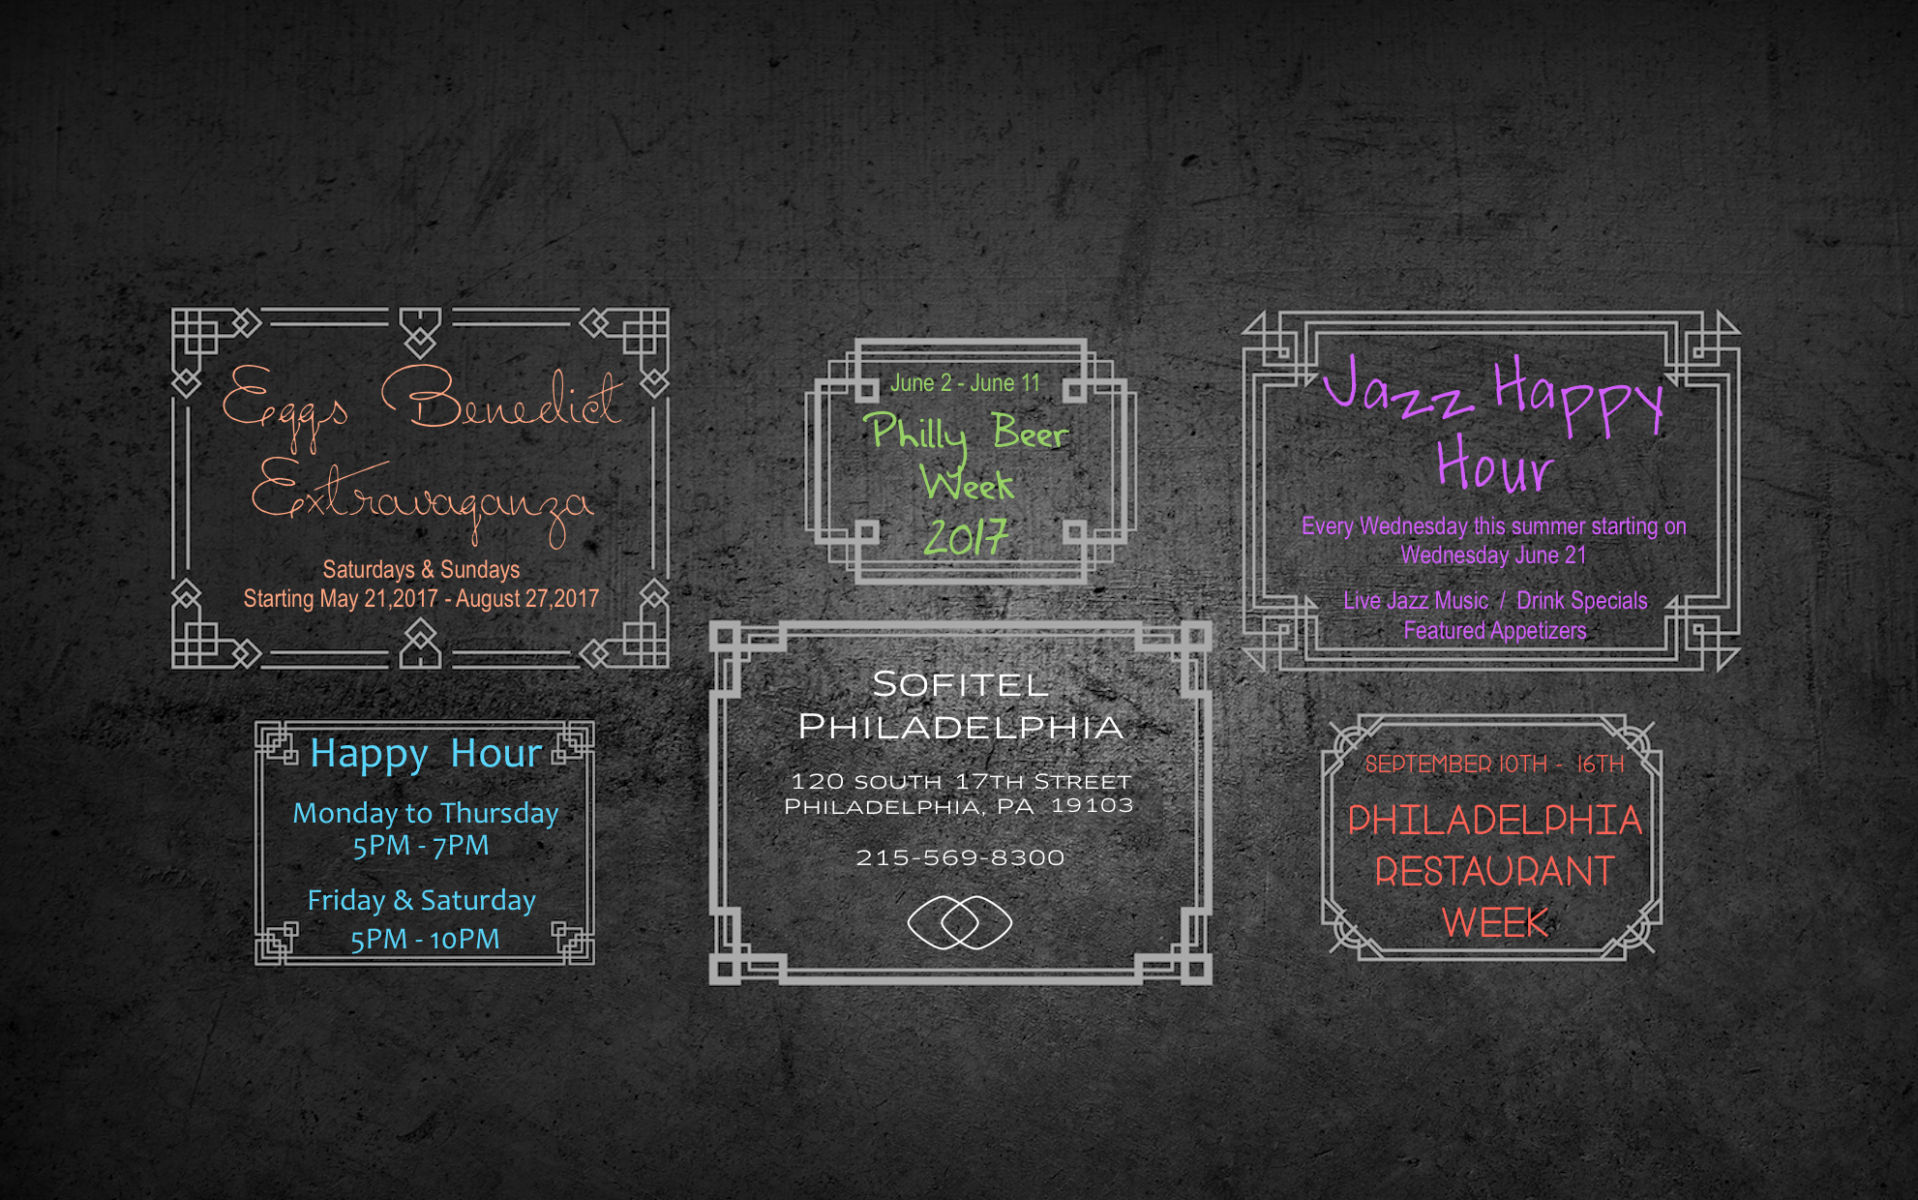 Eggs Benedict
Extravaganza
Saturdays & Sundays
Starting May 21,2017 - August 27,2017
June 2 - June 11
Philly Beer
Week
2017
Jazz Happy
Hour
Every Wednesday this summer starting on
Wednesday June 21
Live Jazz Music / Drink Specials
Featured Appetizers
Happy Hour
Monday to Thursday
5PM - 7PM
Friday & Saturday
5PM - 10PM
Sofitel
Philadelphia
120 south 17th Street
Philadelphia, PA 19103
215-569-8300
SEPTEMBER 10TH - 16TH
PHILADELPHIA
RESTAURANT
WEEK